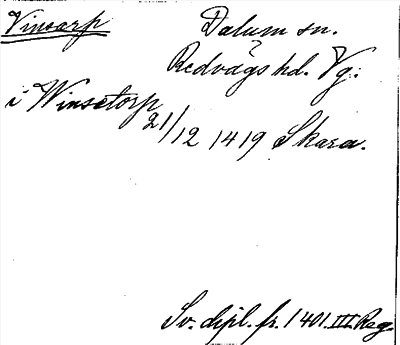 Vinsarp
Dalum sn.
Redvägs hd. Vg:
i Winsetorp
21/12 1419 Skara.
Sv. dipl. fr. 1401 III Reg.